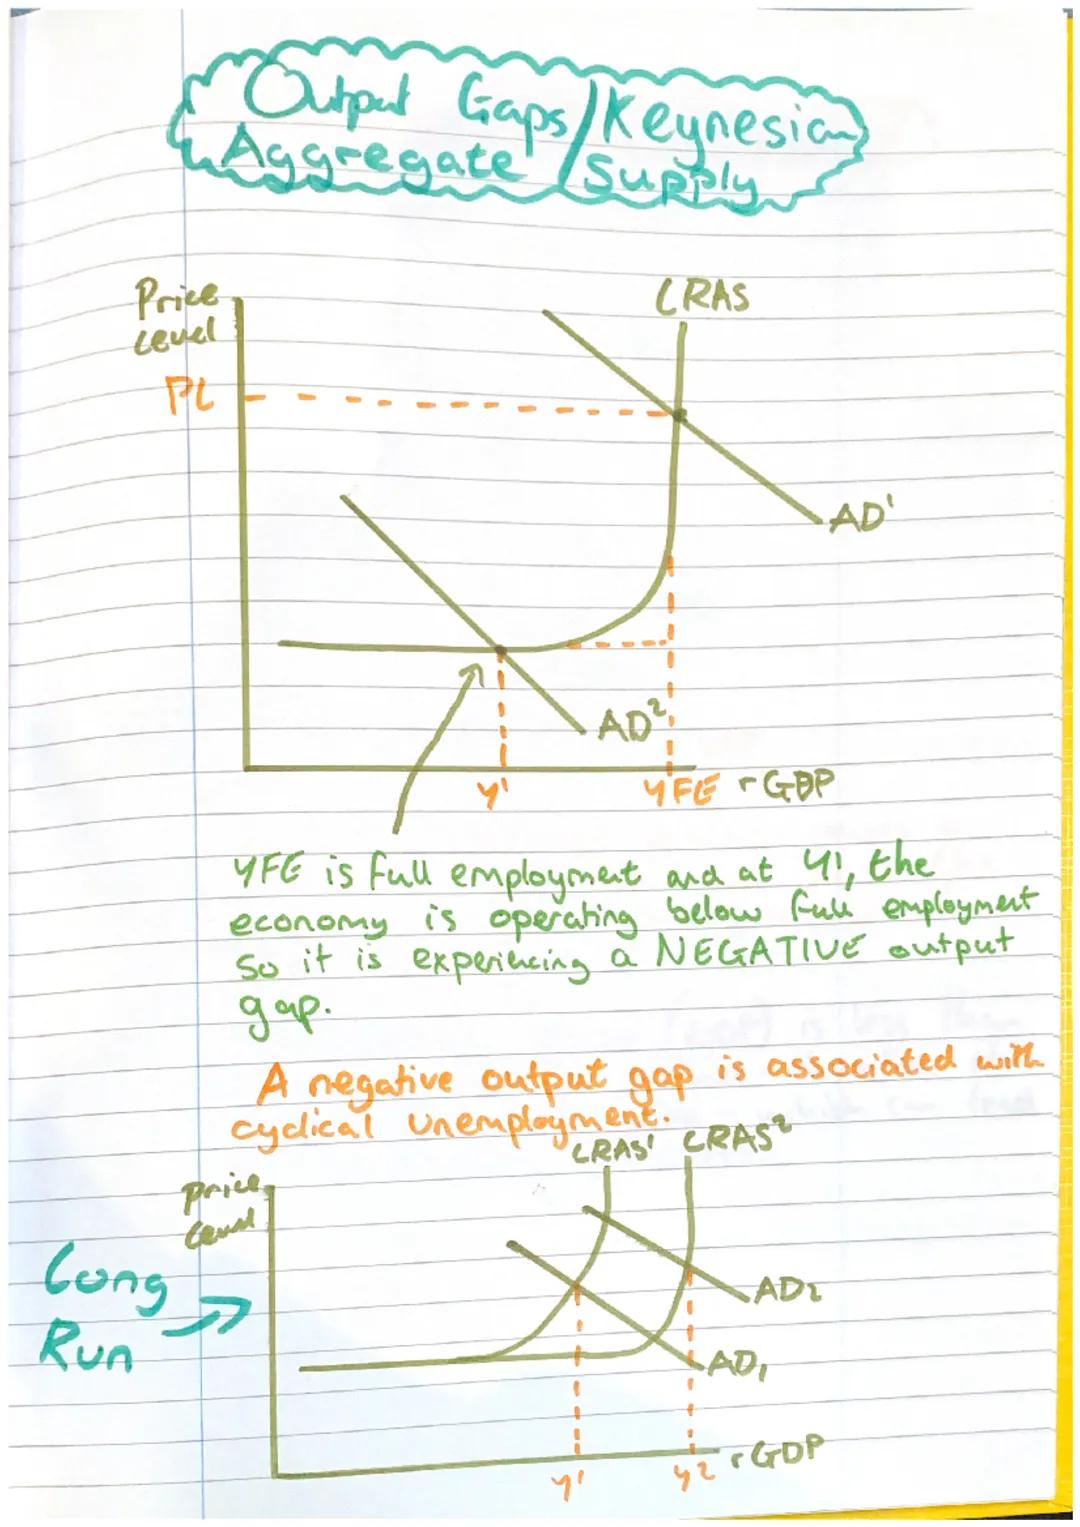 Output Gaps/Keynesian
Aggregate Supply
Price
Level
LRAS
PL
AD'
AD²
Y'
YFE
rGDP
YFE is full employment and at Y1, the
economy is operating below full employment
so it is experiencing a NEGATIVE output
gap.
A negative output gap is associated with
cyclical unemployment.
LRAS' LRAS²
Price
Level
Long
Run
AD2
AD1
Y'
Y2
rGDP